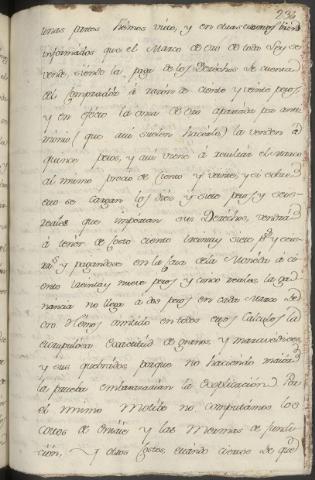 231
unas partes hemos visto, y en otras somos bien
informados que el Marco de oro de toda Ley se
vende, siendo la paga de los Derechos de cuenta
del comprador à razon de ciento y veinte pesos,
y en efecto la onza de oro apartada por anti
monio (que asi suelen hacerlo) la venden à
quince pesos, y asi viene à resultar el marco
al mismo precio de ciento y veinte, y si sobre
esto se cargan los diez y siete pesos y seis
reales que importan sus Derechos, vendrà
à tener de costo ciento treinta y siete p.s y seis
rr.s y pagandose en la Casa de la Moneda à ci
ento treinta y nueve pesos y cinco reales, la ga
nancia no llega à dos pesos en cada Marco de
oro. Hemos omitido en todos estos Calculos la
escrupulosa exactitud de granos, y maravedises
y sus quebrados porque no haciendo mayor
la prueba embarazarian la explicación. Por
el mismo Motibo no computamos los
costos de Ensaie, y las Mermas de fundi
ción, y otros costos, estando ciertos de que